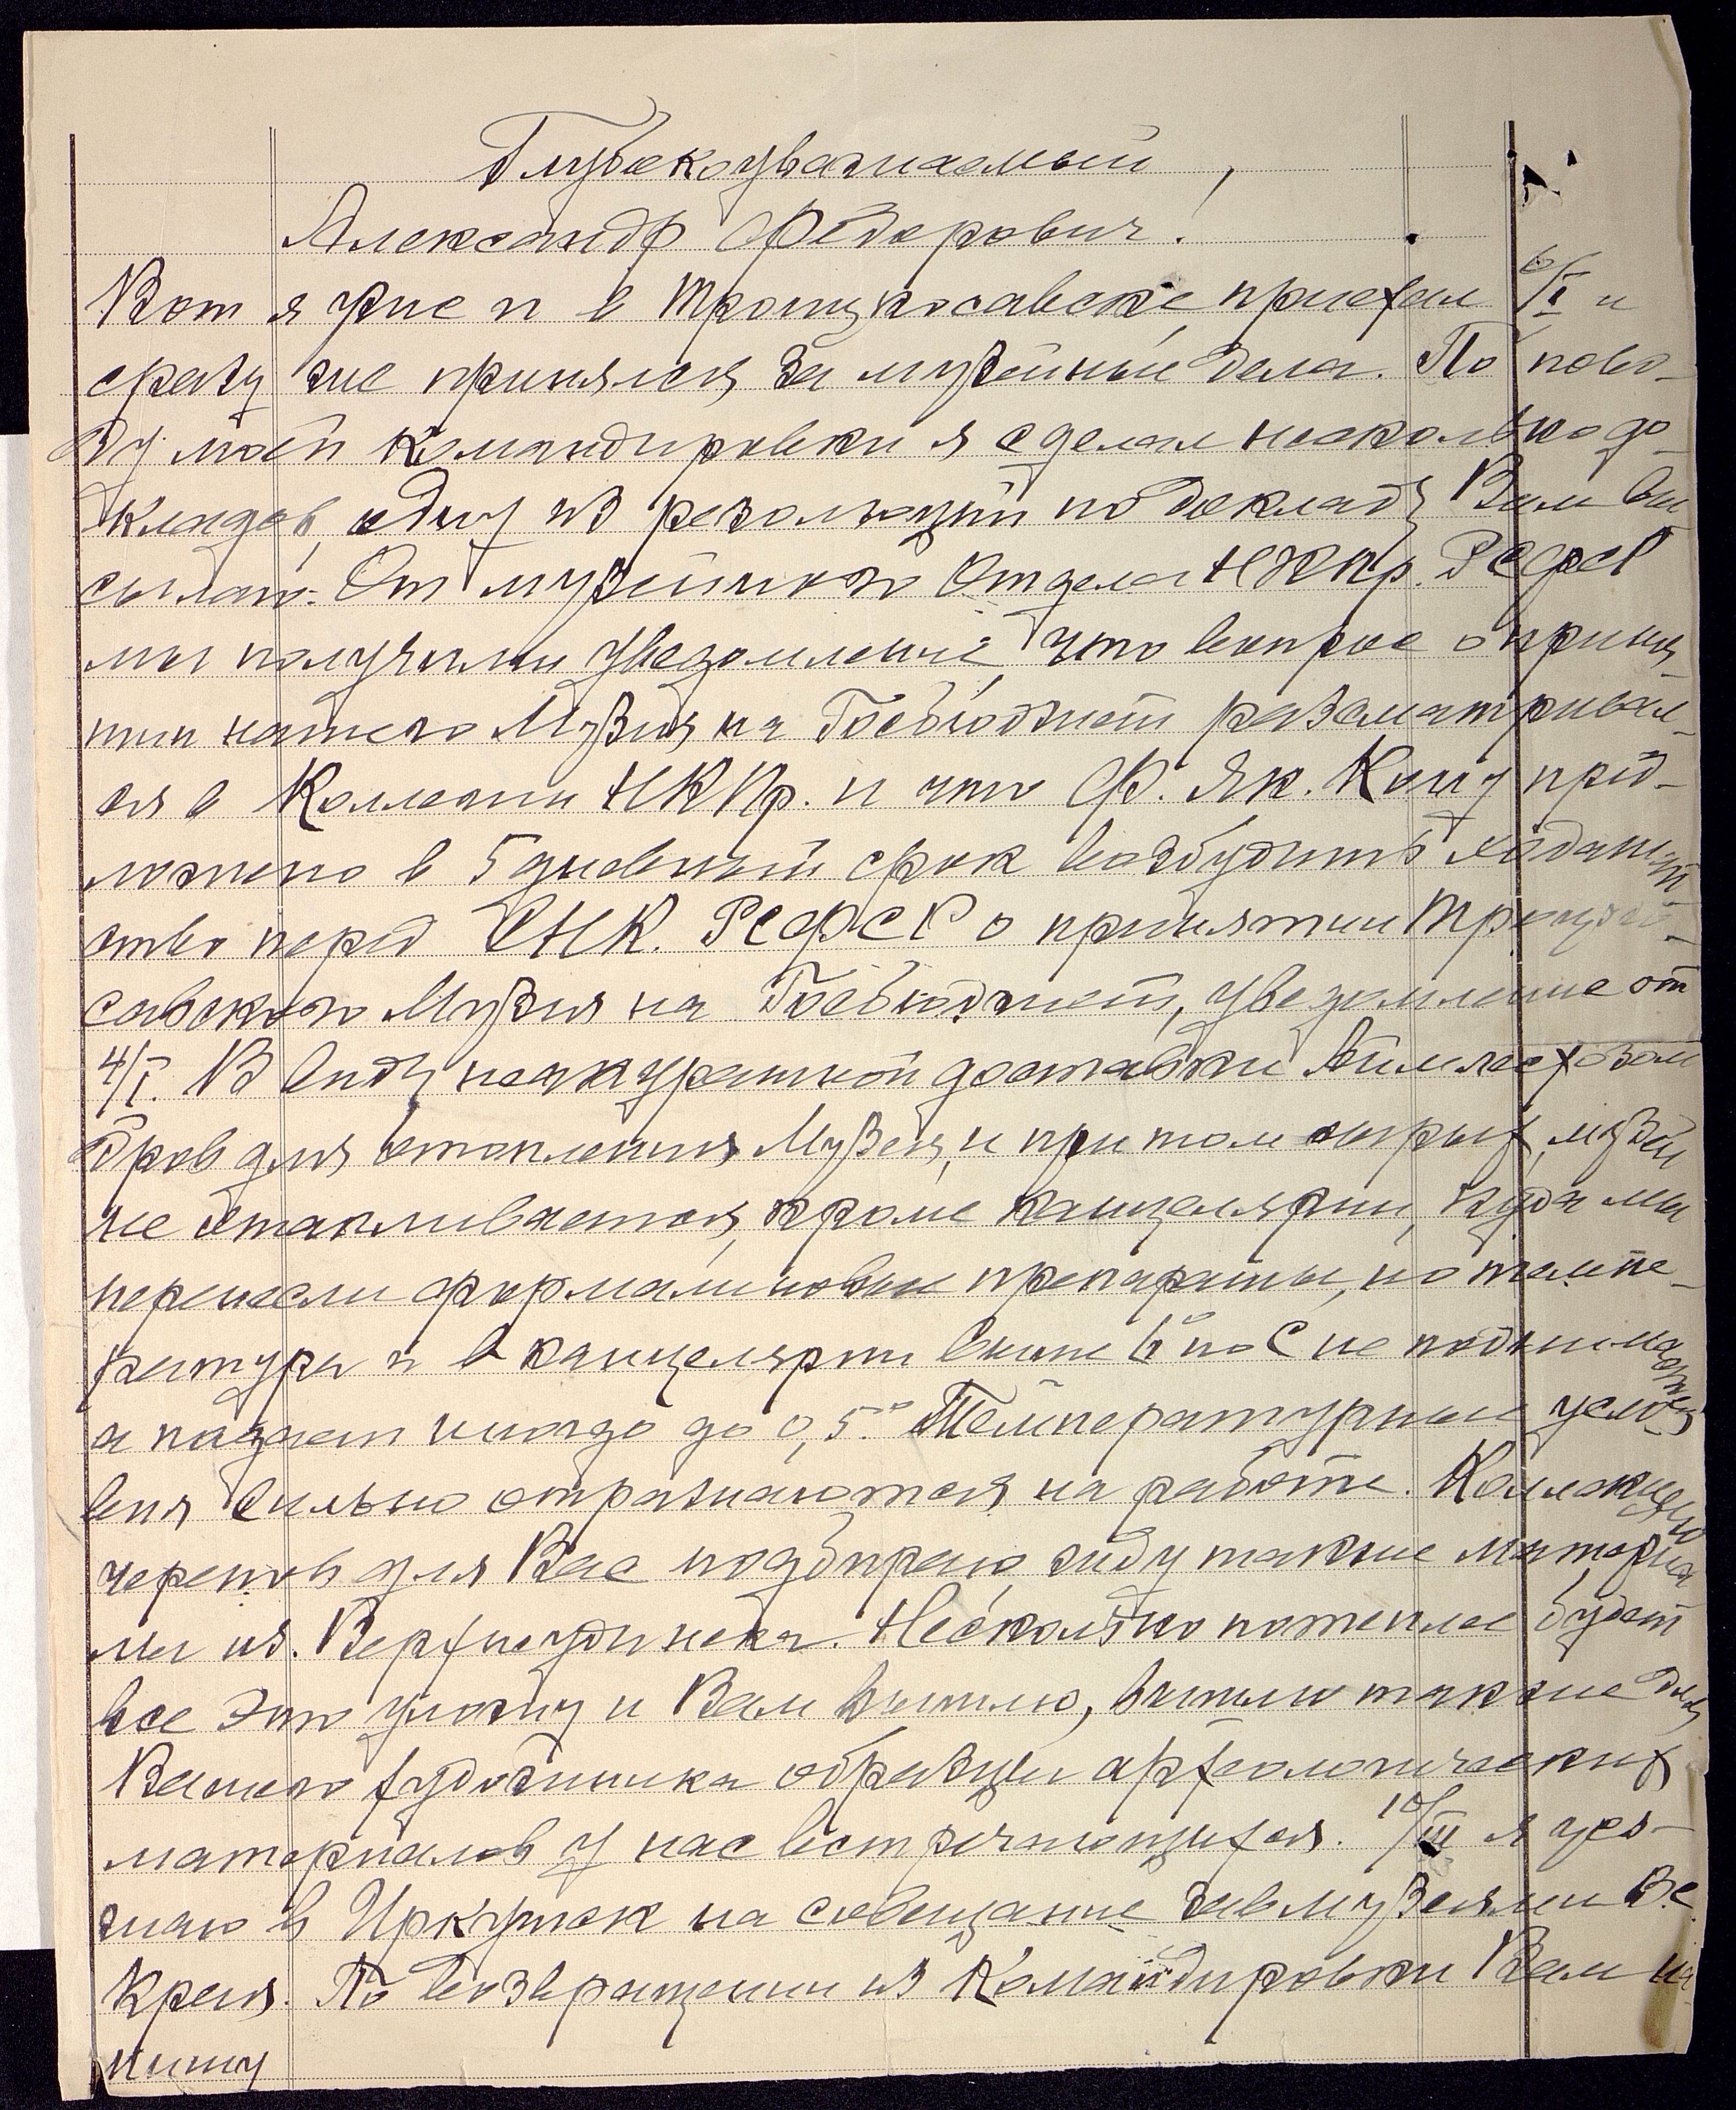 Глубокоуважаемый,
Александр Федорович!
Вот я уже и в Троицкосавске, приехал 6/I и
сразу же принялся за музейные дела. По пово-
ду моей командировки я сделал несколько до-
кладов, одну из резолюций по докладу Вам вы
сылаю. От музейного Отдела НКПр. РСФСР
мы получили уведомление, что вопрос о приня
тии нашего Музея на Госбюджет разсматривал-
ся в Коллегии НКПр. и что Ф. Як. Кону пред-
ложено в 5 дневный срок возбудить ходатай
ство перед СНК. РСФСР о принятии Троицко-
савского Музея на Госбюджет, уведомление от
4/I. В виду неаккуратной доставки
дров для отопления Музея, и притом сырых, музей
не отапливается, кроме канцелярии, куда мы
перенесли формалиновые препараты, но темпе-
ратура и в канцелярии выше 6° по С не поднимается
а падает иногда до 0,5°. Температурные усло-
вия сильно отражаются на работе. Коллекцию
черепов для Вас подбираю, жду также материа
лы из Верхнеудинска. Несколько потеплее будет
все это уложу и Вам вышлю, вышлю также для
Вашего художника образцы археологических
материалов у нас встречающихся. 10/III я уез-
жаю в Иркутск на совещание завмузеями В.С.
Края. По возвращении из командировки Вам на-
пишу